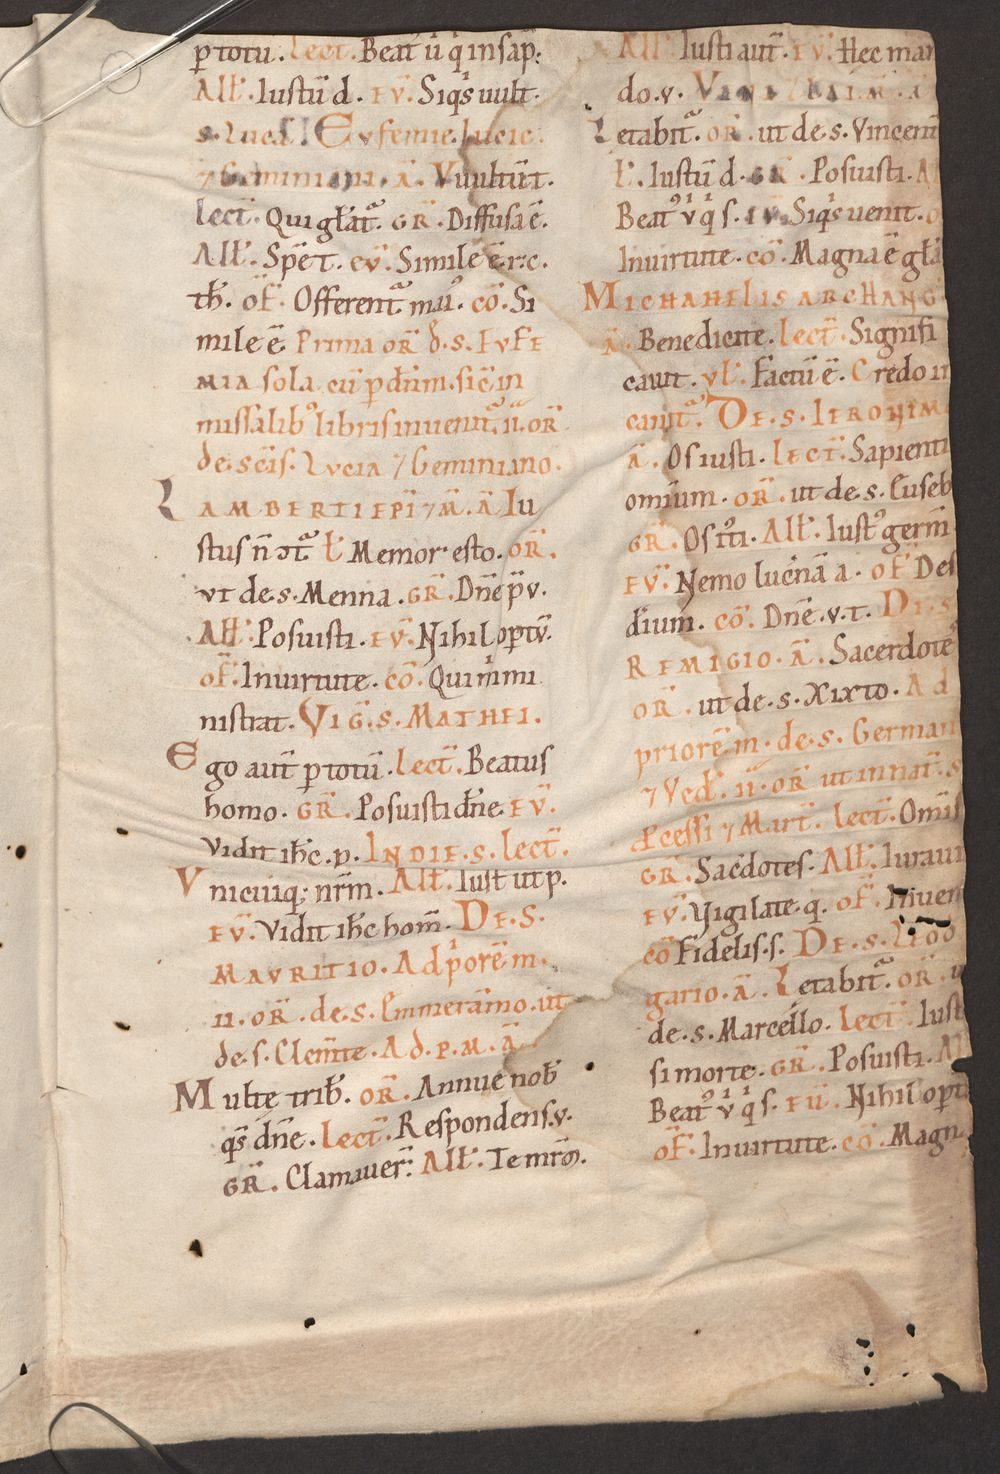 p totū. Lect̄. Beat᷒ ū q̇ in sap̄.
All̄. Iustū d. EV̄. Siq̇s uult.
S. Luce. Eufemie. Lucie.
⁊ Geminiani. ā. Vuultū t.
lect̄. Qui gl̄at᷑. GR̄. Diffusa ē.
All̄. Spē t. ev̄. Simile ē r. c.
th̄. of̄. Offerent᷑ mai᷒. cō. Si
mile ē Prima or̄ d. s. EVFE
MIA sola cū p dn̄m. sic̄ in
missalib᷒ libris inuenit᷑. ii. or̄
de sc̄is. Lvcia ⁊ Geminiano.
LAMBERTI EPI ⁊ M̄. Ā Iu
stus n̄ ↄt᷑ ł Memor esto. OR̄.
vt de. s. Menna. GR̄. Dn̄e p̄v.
All̄. Posuisti. EV̄. Nihil optv̄.
of̄. In uirtute. cō. Qui m̄ mi
nistrat. VIḠ. S. MATHEI.
Ego aut̄ p totū. lect̄. Beatus
homo. GR̄. Posuisti dn̄e EV̄.
Vidit ih̄c. p. IN DIE. s. lect̄.
Vnicuiq; nr̄m. All̄. Iust ut p.
EV̄. Vidit ih̄c hom̄. DE. S.
MAVRITIO. Ad p̍orē m.
ii. or̄. de. s. Emmeram̄o. ut
de. s. Clem̄te. Ad. P. M. Ā.
Multę trib̄. OR̄. Annue nob̄
qs̄ dn̄e. lect̄. Respondens. v.
GR̄. Clamauer̄. All̄. Te mr̄ꝝ.
All̄ Iusti aut̄. EV̄. Hec man
do. v.
Letabit᷑. OR̄. ut de. s. Vincent
ł. Iustū d. GR̄. Posuisti. A
Beat᷒ v̍ q̍ s. EV̄. Siq̍s uenit. o
In uirtute. cō. Magna ē glā
MICHAHELIS ARCHANG
ā. Benedicite. lect̄. Signifi
cauit. vł. Factū ē. Credo in
canit᷑. DE. S. IERONIM
ā. Os iusti. LECT̄. Sapienti
omīum. OR̄. ut de. s. Euseb
GR̄. Os iu̍sti. All̄. Iust᷒ germ̄
EV̄. Nemo lucn̄ā a. of̄ Des
dīum. cō. Dn̄e. v. t. DE. S
REMIGIO. Ā. Sacerdote
OR̄. ut de. s. Xixto. Ad
priorē m. de. s. German
⁊ Ved̄. ii. OR̄ ut in nat̄. s
P̱cessi ⁊ Mart̄. lect̄. Omīs
GR̄. Sacdotes. All̄. Iuraui
EV̄. Vigilate. q. of̄. Inuen
cō Fidelis. s. DE. S. LEOD
gario. ā. Letabit᷑. OR̄. u
de. s. Marcello. Lect̄. Iust
si morte. GR̄. Posuisti. All
Beat᷒ v̍ q̍ s. EV̄. Nihil opt
of̄. In uirtute. cō. Magn